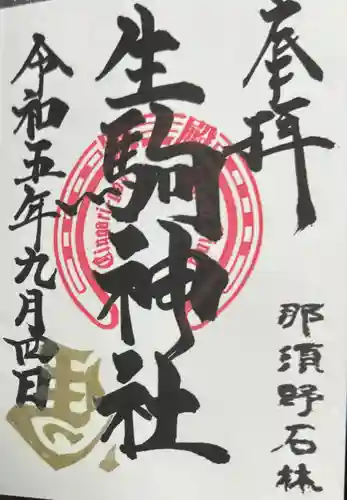 奉拝
那須野石林
生駒神社
令和五年九月四日